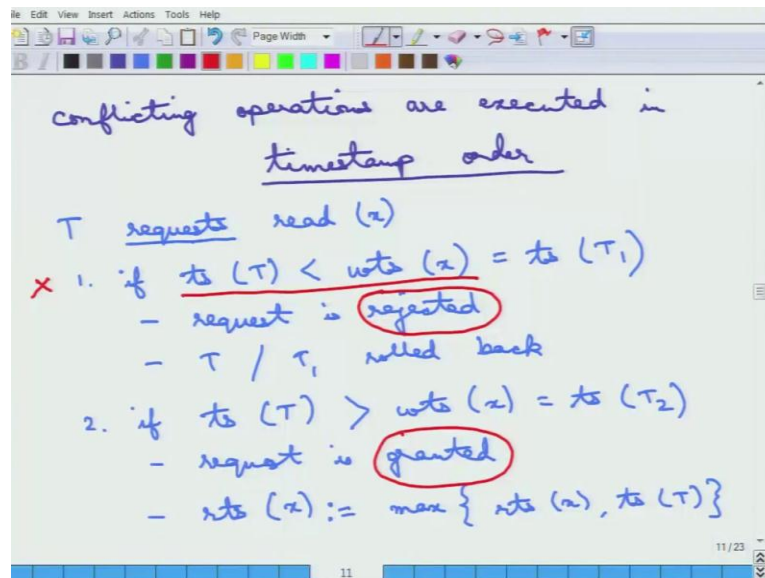 Edit View Insert Actions Tools Help
Page Width
conflicting operations are executed in
timestamp order
T requests read (x)
x 1. if ts (T) < wts (x) = ts (T₁)
- request is rejected
- T / T₁ rolled back
2. if ts (T) > wts (x) = ts (T₂)
- request is granted
- rts (x) := max { rts (x), ts (T) }
11 / 23
11